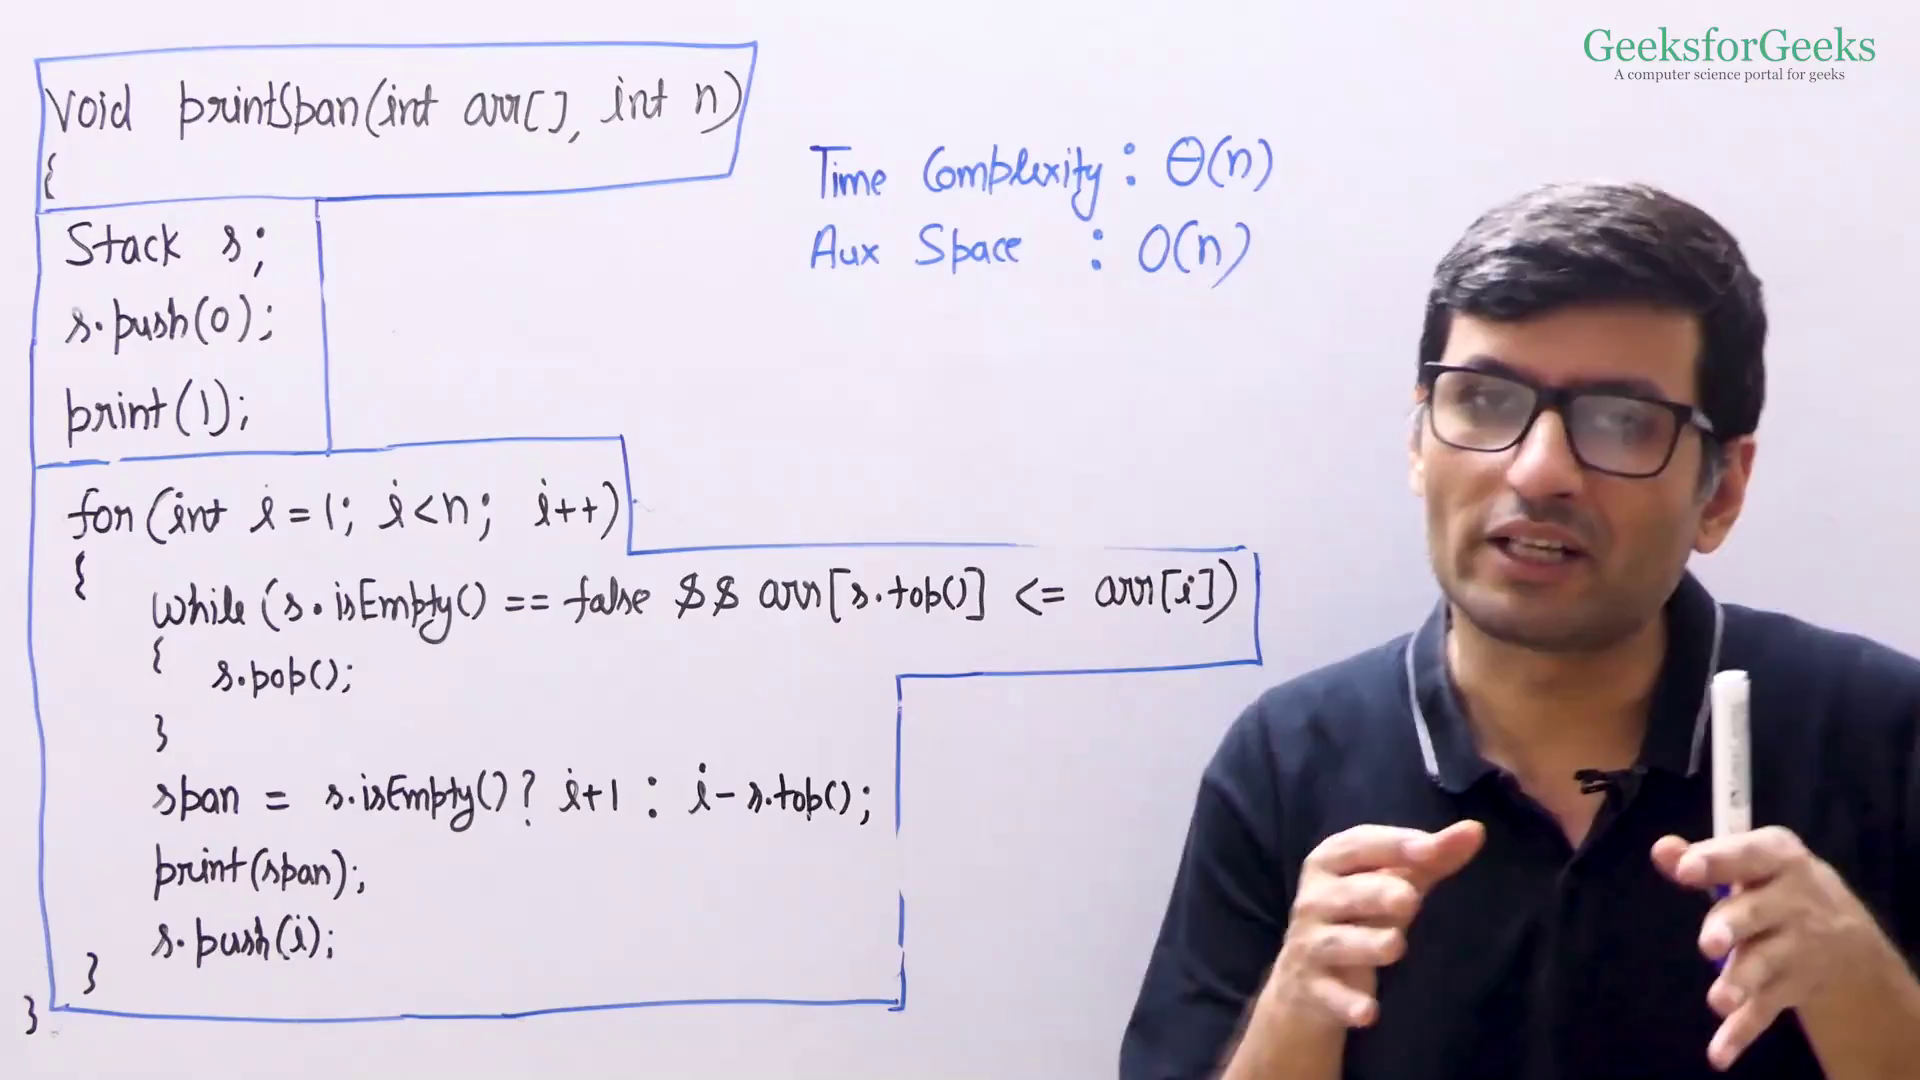 GeeksforGeeks
A computer science portal for geeks
void printSpan(int arr[], int n)
{
Stack s;
s.push(0);
print(1);
for (int i=1; i<n; i++)
{
while (s.isEmpty() == false && arr[s.top()] <= arr[i])
{
s.pop();
}
span = s.isEmpty()? i+1 : i-s.top();
print(span);
s.push(i);
}
}
Time Complexity : Θ(n)
Aux Space : O(n)